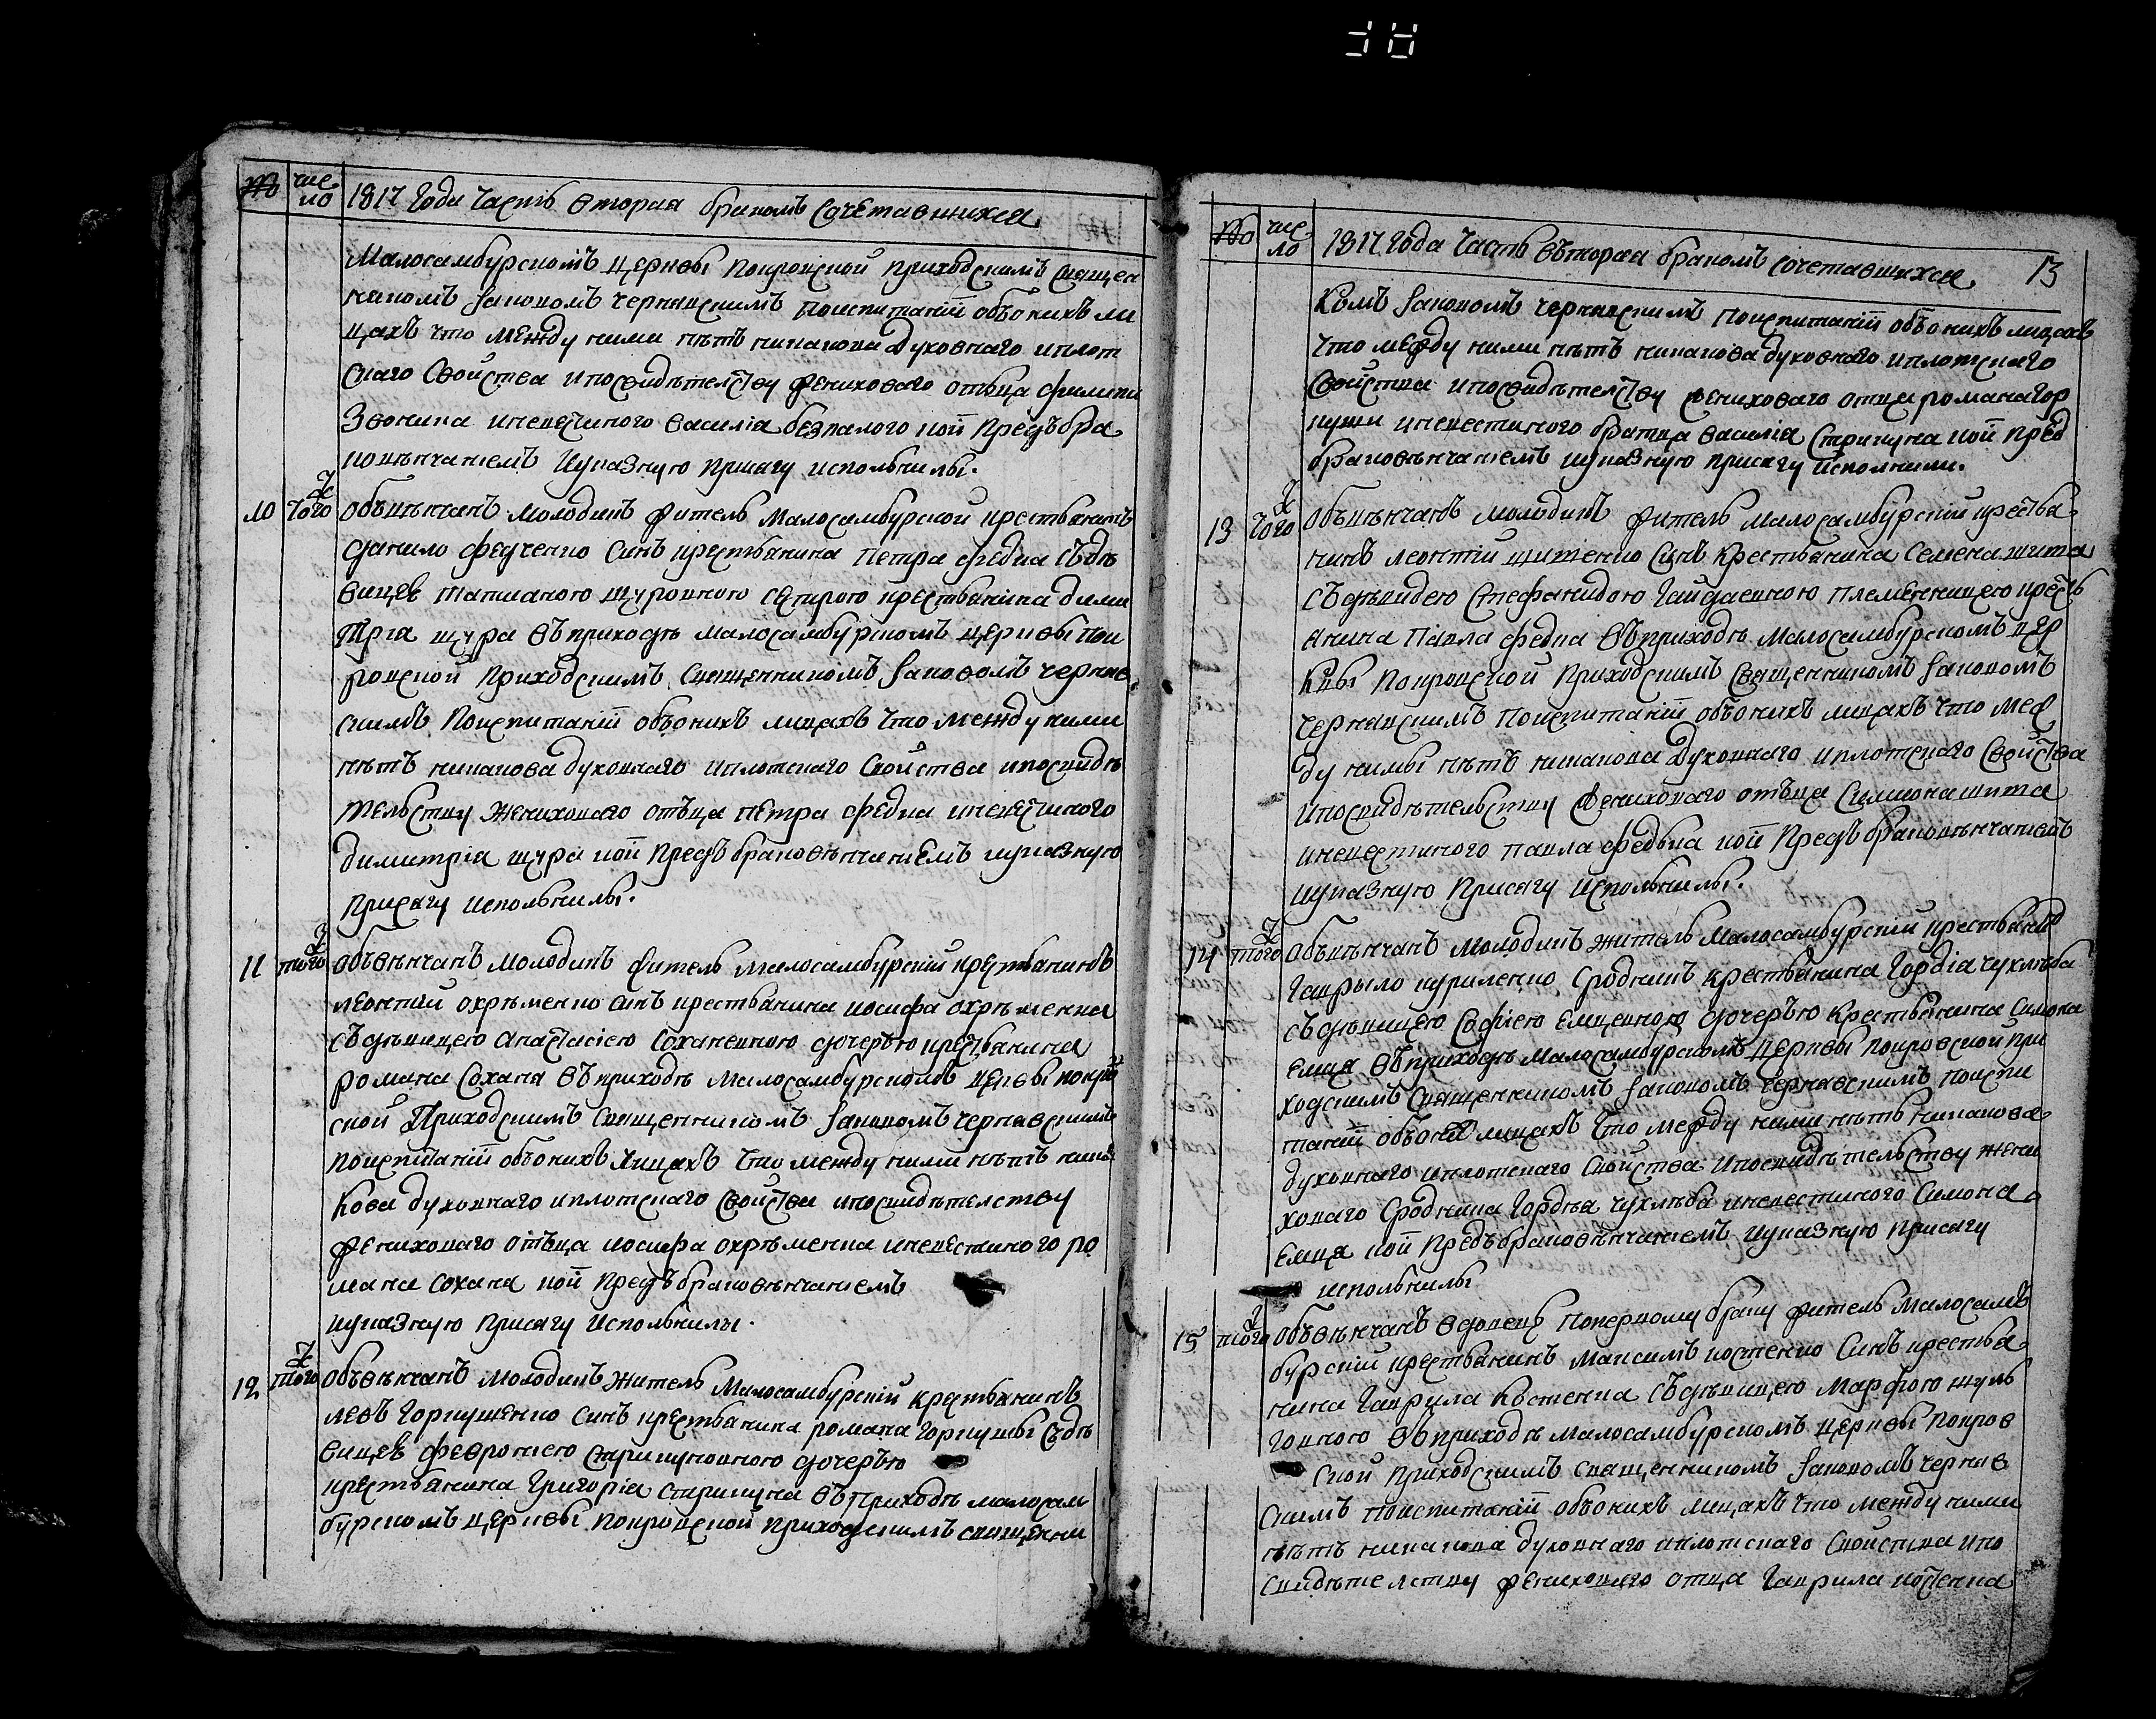 № чис
ло
1817 Года Часть вторая бракомъ Сочетавшихся
Малосамбурскомъ церквы Покровской Приходскимъ Священ
никомъ Іаковомъ Чернявскимъ Поиспитаніи обьонихъ ли
цахъ что между ними нѣтъ никакова духовнаго иплот
скаго Свойства ипосвидѣтелству жениховаго отьца филипа
Звоника иневестиного василія безпалого кои Предъбра
ковѣнчаніемъ Иуказную присягу исполнилы.
10 7 Того Обьвѣнчанъ Молодикъ житель Малосамбурской крестьянинъ
данило федченко Синъ крестьянина Петра федка Съдѣ
вицею татианою щуровною сестрою крестьянина дими
трія щура въприходѣ Малосамбурскомъ церквы Пок
ровской Приходскимъ Священникомъ Іаковомъ черняв
скимъ Поиспитаніи обьонихъ лицахъ что между ними
нѣтъ никакова духовнаго иплотскаго Свойства ипосвидѣ
тельству жениховаго отьца петра федка иневестиного
димитрія щура кои Предъ браковѣнчаніемъ иуказную
присягу исполнилы.
11 7 того Обьвѣнчанъ Молодикъ житель малосамбурскій крестьянинъ
леонтий охрѣменко синъ крестьянина иосифа охрѣменка
Съдѣвицею Анастасіею Соханевною дочерью крестьянина
романа Сохана въприходѣ Малосамбурскомъ церквы покров
ской Приходскимъ Священникомъ Іаковомъ чернявскимъ
Поиспитаніи обьонихъ лицахъ что между ними нѣтъ ника
кова духовнаго иплотскаго свойства ипосвидѣтелству
жениховаго отьца иосифа охрѣменка иневестиного ро
мана Сохана кои Предъ браковѣнчаніемъ
иуказную присягу исполнилы.
12 7 того Обьвѣнчанъ Молодикъ житель Малосамбурскій крестьянинъ
левъ Горкушенко синъ крестьянина романа Горкушы Съдѣ
вицею февроніею старикуновною дочерью
крестьянина Григорія старикуна въприходѣ малосам
бурскомъ церквы Покровской приходскимъ священни
№ чис
ло
1817 Года Часть вьторая бракомъ сочетавшихся 13
комъ Іаковомъ чернявскимъ поиспитаніи обьонихъ лицахъ
что между ними нѣтъ никакова духовнаго иплотскаго
Свойства ипосвидѣтелству жениховаго отца романа гор
куши иневестиного братца василія Старикуна кои пред
браковѣнчаніемъ иуказную присягу исполнили.
13 7 Того Обьвѣнчанъ молодикъ житель малосамбурскій крестья
нинъ леонтій щитенко Синъ Крестьянина Семена щита
Съдѣвицею Стефанидою Гайдаевною племенницею кресть
янина Павла федка въприходѣ Малосамбурскомъ цер
квы Покровской Приходскимъ Священникомъ Іаковомъ
чернявскимъ Поиспитаніи обьонихъ лицахъ что меж
ду нимы нѣтъ никакова духовнаго иплотскаго Свойства
ипосвидѣтельству жениховаго отьца Симиона щита
иневестиного павла федька кои Предъ браковѣнчаніемъ
иуказную присягу исполнилы.
14 7 того Обьвѣнчанъ Молодикъ житель Малосамбурскій крестьянинъ
Гаврыло куриленко Сродникъ крестьянина Гордія чухлѣба
съдѣвицею Софіею Емцевною дочерью крестьянина Симона
емца въприходѣ Малосамбурскомъ церквы Покровской при
ходскимъ Священникомъ Іаковомъ чернявскимъ поиспи
таніи обьонихъ лицахъ что между ними нѣтъ никакова
духовнаго иплотскаго Свойства ипосвидѣтельству жени
ховаго Сродника Гордѣя чухлѣба иневестиного Симона
емца кои Предъбраковѣнчаніемъ иуказную присягу
исполнилы
15 7 того Обьвѣнчанъ вдовецъ Попервому браку житель Малосам
бурскій крестьянинъ Максимъ костенко Синъ крестья
нина Гаврила Костенка Съдѣвицею Марфою шуль
говною въприходѣ малосамбурскомъ церквы Покров
ской приходскимъ священникомъ Іаковомъ черняв
скимъ поиспитаніи обьонихъ лицахъ что между ними
нѣтъ никакова духовнаго иплотскаго Свойства ипо
свидѣтелству жениховаго отца Гаврила костенка